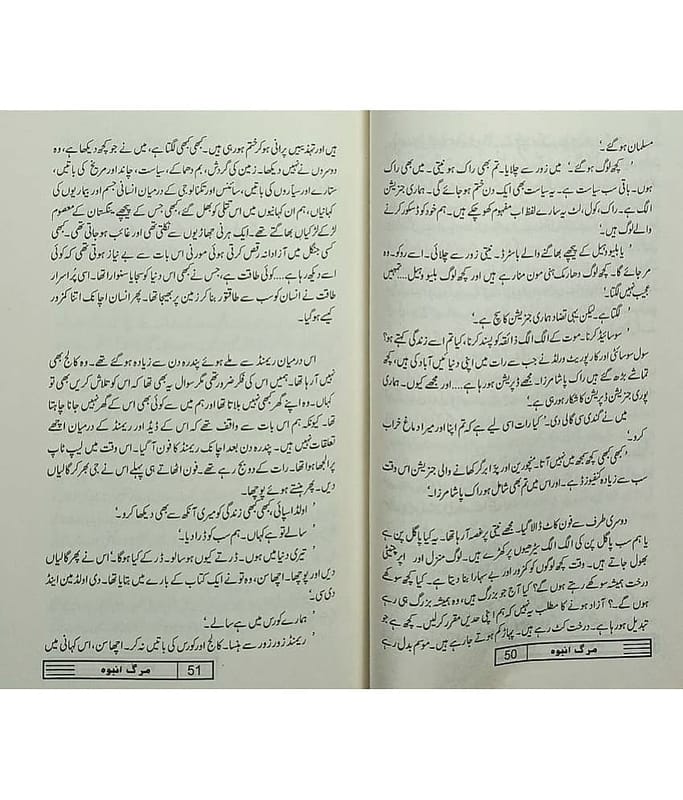 مسلمان ہو گئے۔‘
’ کچھ لوگ ہو گئے۔‘ میں زور سے چلایا۔ تم بھی راک ہو نیتی۔ میں بھی راک
ہوں۔ باقی سب سیاست ہے۔ یہ سیاست بھی ایک دن ختم ہو جائے گی۔ ہماری جنریشن
الگ ہے۔ راک، کول، لٹ یہ سارے لفظ اب مفہوم کھو چکے ہیں۔ ہم خود کو ڈسکور کرنے
والے لوگ ہیں۔‘
’ یا بلیو وہیل کے پیچھے بھاگنے والے باسٹرڈ۔‘ نیتی زور سے چلائی۔ اسے روکو۔ وہ
مر جائے گا۔ کچھ لوگ دھارمک ہنی مون منا رہے ہیں اور کچھ لوگ بلیو وہیل....تمہیں
عجیب نہیں لگتا۔‘
’ لگتا ہے۔ لیکن یہی تضاد ہماری جنریشن کا سچ ہے۔‘
’ سوسائیڈ کرنا۔ موت کے الگ الگ ذائقہ کو پسند کرنا، کیا تم اسے زندگی کہتے ہو؟
سول سوسائٹی اور کارپوریٹ ورلڈ نے جب سے رات میں اپنی دنیائیں آباد کی ہیں، کچھ
تماشے بڑھ گئے ہیں راک پاشا مرزا۔ مجھے ڈپریشن ہو رہا ہے....اور مجھے کیوں۔ ہماری
پوری جنریشن ڈپریشن کا شکار ہو رہی ہے۔‘
میں نے گندی سی گالی دی۔ ’کیا رات اسی لیے ہے کہ تم اپنا اور میرا دماغ خراب
کرو۔‘
’ کبھی کبھی کچھ سمجھ میں نہیں آتا۔ منچورین اور پزا برگر کھانے والی جنریشن اس وقت
سب سے زیادہ کنفیوزڈ ہے۔ اور اس میں تم بھی شامل ہو راک پاشا مرزا۔‘
دوسری طرف سے فون کاٹ ڈالا گیا۔ مجھے نیتی پر غصہ آ رہا تھا۔ یہ کیا پاگل پن ہے
یا ہم سب پاگل پن کی الگ الگ سیڑھیوں پر کھڑے ہیں۔ لوگ منزل اور اپر
بھول جاتے ہیں۔ وقت کچھ لوگوں کو کمزور اور بے سہارا بنا دیتا ہے۔ کیا کچھ سوکھے
درخت ہمیشہ سوکھے رہتے ہوں گے؟ کیا آج جو بزرگ ہیں، وہ ہمیشہ بزرگ ہی رہے
ہوں گے؟ آزاد ہونے کا مطلب یہ نہیں کہ ہم اپنی حدیں مقرر کر لیں۔ کچھ ہے جو
تبدیل ہو رہا ہے۔ درخت کٹ رہے ہیں۔ پہاڑ کم ہوتے جا رہے ہیں۔ موسم بدل رہے
50 مرگ انبوہ
ہیں اور تہذیبیں پرانی ہو کر ختم ہو رہی ہیں۔ کبھی کبھی لگتا ہے، میں نے جو کچھ دیکھا ہے، وہ
دوسروں نے نہیں دیکھا۔ زمین کی گردش، بم دھماکے، سیاست، چاند اور مریخ کی باتیں،
ستارے اور سیاروں کی باتیں، سائنس اور تکنالوجی کے درمیان انسانی جسم اور بیماریوں کی
کہانیاں، ہم ان کہانیوں میں اس تتلی کو بھول گئے، کبھی جس کے پیچھے پنکستان کے معصوم
لڑکے لڑکیاں بھاگتے تھے۔ ایک ہرنی جھاڑیوں سے نکلتی تھی اور غائب ہو جاتی تھی۔ کبھی
کسی جنگل میں آزادانہ رقص کرتی ہوئی مورنی اس بات سے بے نیاز ہوتی تھی کہ کوئی
اسے دیکھ رہا ہے....کوئی طاقت ہے، جس نے کبھی اس دنیا کو سجایا سنوارا تھا۔ اسی پراسرار
طاقت نے انسان کو سب سے طاقتور بنا کر زمین پر بھیجا تھا۔ پھر انسان اچانک اتنا کمزور
کیسے ہو گیا۔
اس درمیان ریمنڈ سے ملے ہوئے پندرہ دن سے زیادہ ہو گئے تھے۔ وہ کالج بھی
نہیں آ رہا تھا۔ ہمیں اس کی فکر ضرور تھی مگر سوال یہ بھی تھا کہ اس کو تلاش کریں بھی تو
کہاں۔ وہ اپنے گھر کبھی نہیں بلاتا تھا اور ہم میں سے کوئی بھی اس کے گھر نہیں جانا چاہتا
تھا۔ کیونکہ ہم اس بات سے واقف تھے کہ اس کے ڈیڈ اور ریمنڈ کے درمیان اچھے
تعلقات نہیں ہیں۔ پندرہ دن بعد اچانک ریمنڈ کا فون آ گیا۔ اس وقت میں لیپ ٹاپ
پر الجھا ہوا تھا۔ رات کے دو بج رہے تھے۔ فون اٹھاتے ہی پہلے اس نے جی بھر کر گالیاں
دیں۔ پھر ہنستے ہوئے پوچھا۔
’ اولڈ اسپائی، کبھی کبھی زندگی کو میری آنکھ سے بھی دیکھا کرو۔‘
’ سالے تو ہے کہاں۔ ہم سب کو ڈرا دیا۔‘
’ تیری دنیا میں ہوں۔ ڈرتے کیوں ہو سالو۔ ڈر کے کیا ہوگا۔‘ اس نے پھر گالیاں
دیں اور پوچھا۔ اچھا سن، وہ تو نے ایک کتاب کے بارے میں بتایا تھا۔ دی اولڈ مین اینڈ
دی سی۔‘
’ ہمارے کورس میں ہے سالے۔‘
’ ریمنڈ زور زور سے ہنسا۔ کالج اور کورس کی باتیں نہ کر۔ اچھا سن، اس کہانی میں
51 مرگ انبوہ